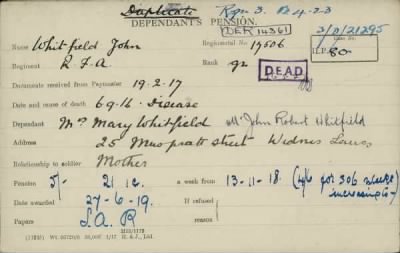 Duplicate Rgn 3.
DEPENDANT'S PENSION.
DER 14361 3/D/21295
Name Whitfield John Regimental No 17506 Case No.
Regiment R F A Rank gr I.F.P. 80
DEAD
Documents received from Paymaster 19.2.17
Date and cause of death 6.9.16 Disease
Dependant Mrs Mary Whitfield Mr John Robert Whitfield
Address 25 Muspratt Street Widnes Lancs
Relationship to soldier Mother
Pension 5/- 21 a week from 13-11-18. (4/6 for 306 weeks
increasing
Date awarded 27-6-19. If refused
reason
Papers S.A.R
H. & J., Ltd.